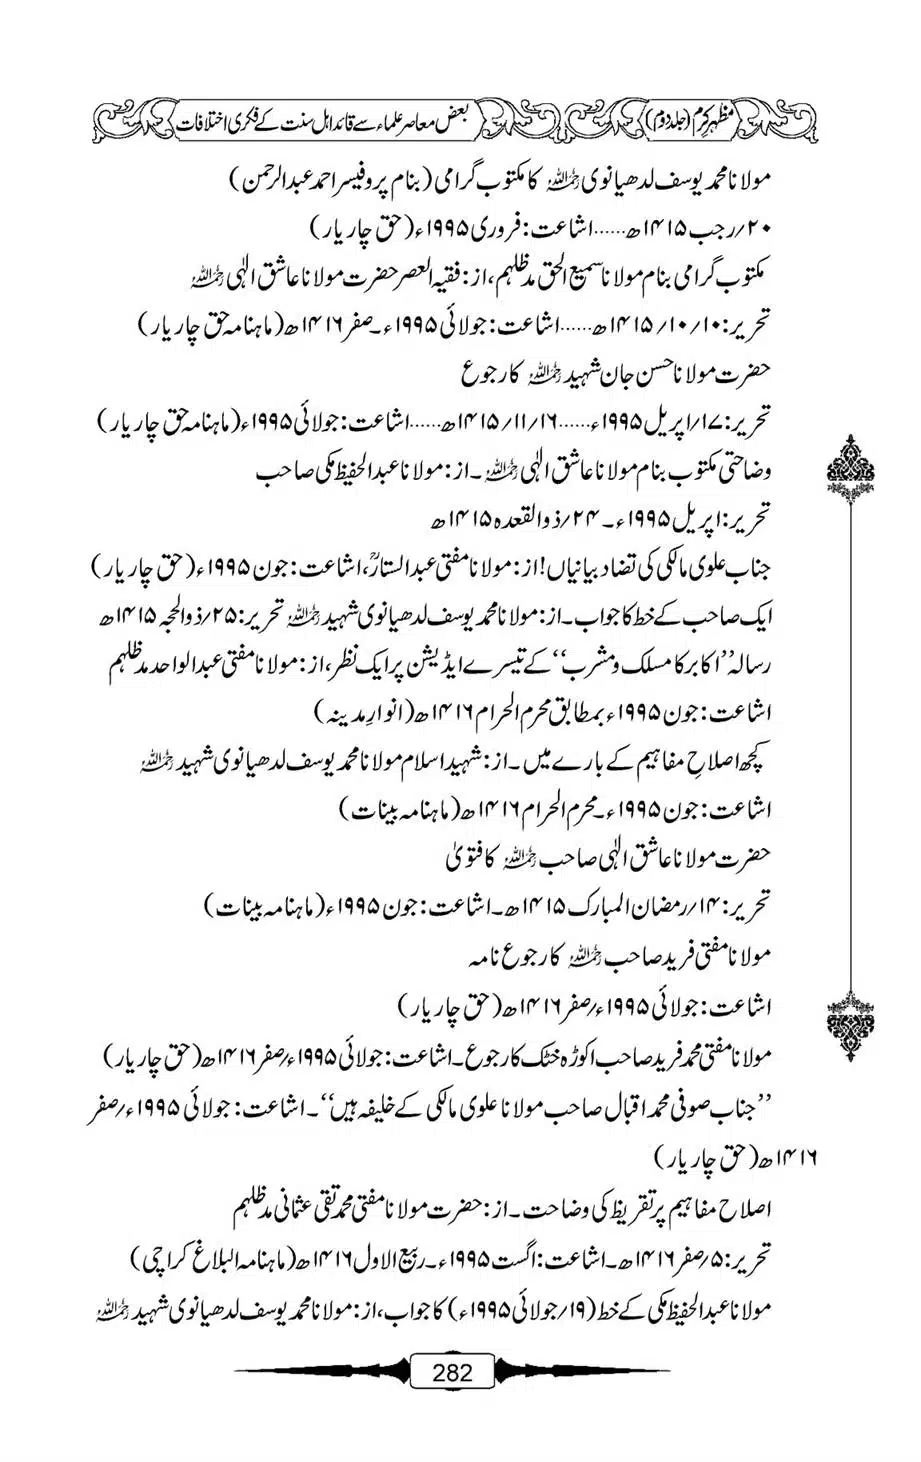 مظہرِ کرم (جلد دوم)
بعض معاصر علماء سے قائد اہل سنت کے فکری اختلافات
مولانا محمد یوسف لدھیانوی رحمہ اللہ کا مکتوب گرامی (بنام پروفیسر احمد عبدالرحمن)
۲۰؍رجب ۱۴۱۵ھ......اشاعت: فروری ۱۹۹۵ء (حق چار یار)
مکتوب گرامی بنام مولانا سمیع الحق مدظلہم، از: فقیہ العصر حضرت مولانا عاشق الٰہی رحمہ اللہ
تحریر: ۱۰؍۱۰؍۱۴۱۵ھ......اشاعت: جولائی ۱۹۹۵ء۔صفر ۱۴۱۶ھ (ماہنامہ حق چار یار)
حضرت مولانا حسن جان شہید رحمہ اللہ کا رجوع
تحریر: ۱۷؍اپریل ۱۹۹۵ء......۱۶؍۱۱؍۱۴۱۵ھ......اشاعت: جولائی ۱۹۹۵ء (ماہنامہ حق چار یار)
وضاحتی مکتوب بنام مولانا عاشق الٰہی رحمہ اللہ۔ از: مولانا عبدالحفیظ مکی صاحب
تحریر: اپریل ۱۹۹۵ء۔ ۲۴؍ذوالقعدہ ۱۴۱۵ھ
جناب علوی مالکی کی تضاد بیانیاں! از: مولانا مفتی عبدالستارؒ، اشاعت: جون ۱۹۹۵ء (حق چار یار)
ایک صاحب کے خط کا جواب۔ از: مولانا محمد یوسف لدھیانوی شہید رحمہ اللہ تحریر: ۲۵؍ذوالحجہ ۱۴۱۵ھ
رسالہ ’’اکابر کا مسلک و مشرب‘‘ کے تیسرے ایڈیشن پر ایک نظر، از: مولانا مفتی عبدالواحد مدظلہم
اشاعت: جون ۱۹۹۵ء بمطابق محرم الحرام ۱۴۱۶ھ (انوارِ مدینہ)
کچھ اصلاحِ مفاہیم کے بارے میں۔ از: شہید اسلام مولانا محمد یوسف لدھیانوی شہید رحمہ اللہ
اشاعت: جون ۱۹۹۵ء۔ محرم الحرام ۱۴۱۶ھ (ماہنامہ بینات)
حضرت مولانا عاشق الٰہی صاحب رحمہ اللہ کا فتویٰ
تحریر: ۱۴؍رمضان المبارک ۱۴۱۵ھ۔ اشاعت: جون ۱۹۹۵ء (ماہنامہ بینات)
مولانا مفتی فرید صاحب رحمہ اللہ کا رجوع نامہ
اشاعت: جولائی ۱۹۹۵ء؍صفر ۱۴۱۶ھ (حق چار یار)
مولانا مفتی محمد فرید صاحب اکوڑہ خٹک کا رجوع۔ اشاعت: جولائی ۱۹۹۵ء؍صفر ۱۴۱۶ھ (حق چار یار)
’’جناب صوفی محمد اقبال صاحب مولانا علوی مالکی کے خلیفہ ہیں‘‘۔ اشاعت: جولائی ۱۹۹۵ء؍صفر
۱۴۱۶ھ (حق چار یار)
اصلاح مفاہیم پر تقریظ کی وضاحت۔ از: حضرت مولانا مفتی محمد تقی عثمانی مدظلہم
تحریر: ۵؍صفر ۱۴۱۶ھ۔ اشاعت: اگست ۱۹۹۵ء۔ ربیع الاول ۱۴۱۶ھ (ماہنامہ البلاغ کراچی)
مولانا عبدالحفیظ مکی کے خط (۱۹؍جولائی ۱۹۹۵ء) کا جواب، از: مولانا محمد یوسف لدھیانوی شہید رحمہ اللہ
282